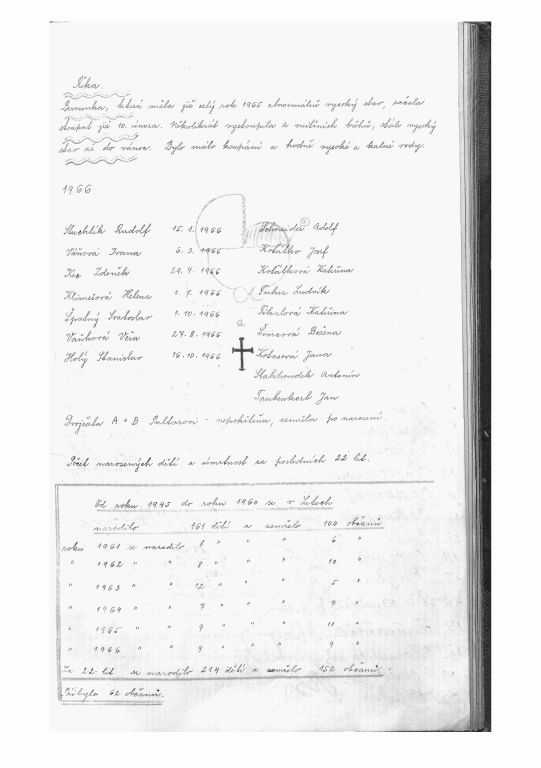 Řeka.
Berounka, která měla již celý rok 1965 abnormálně vysoký stav, začala
stoupat již 10. února. Několikrát vystoupila z vnitřních břehů, stále vysoký
stav až do vánoc. Bylo málo koupání a hodně vysoké a kalné vody.
1966
Stuchlík Rudolf 15. 1. 1966 Schneider Adolf
Váňová Ivana 6. 3. 1966 Koťátko Josef
Kec Zdeněk 29. 4. 1966 Koťátková Kateřina
Klimešová Helena 1. 7. 1966 Fuksa Ludvík
Špatný Svatoslav 1. 10. 1966 Kateřina
Vaňková Věra 27. 8. 1966 Švarcová Božena
Holý Stanislav 16. 10. 1966 Kotasová Jana
Antonín
Taubenkorb Jan
Dvojčata A + B - nepokřtěna, zemřela po narození.
Počet narozených dětí a úmrtnost za posledních 22 let.
Od roku 1945 do roku 1960 se v Letech
narodilo 161 dětí a zemřelo 100 občanů
roku 1961 se narodilo 8 " " " 6 "
" 1962 " " 8 " " " 10 "
" 1963 " " 12 " " " 5 "
" 1964 " " 7 " " " 7 "
" 1965 " " 9 " " " 11 "
" 1966 " " 9 " " " 9 "
Za 22 let se narodilo 214 dětí a zemřelo 152 občanů.
Přibylo 62 občanů.